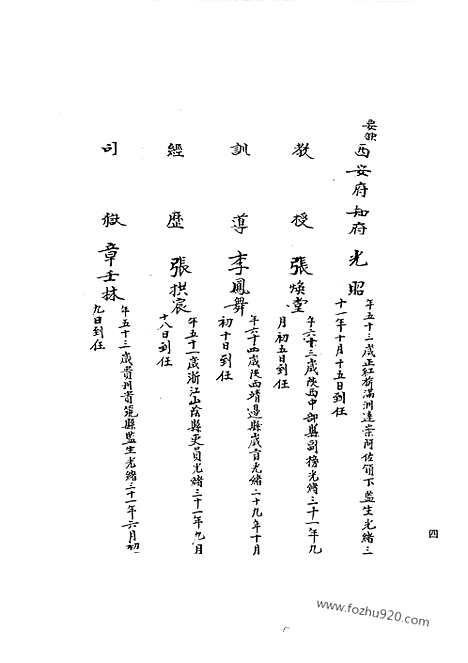 要缺西安府知府光昭年五十三歲正紅旂滿洲達崇阿佐領下監生光緒三
十一年十月十五日到任
教授張煥堂年六十三歲陝西中部縣副榜光緒三十一年九
月初五日到任
訓導李鳳舞年六十四歲陝西靖邊縣歲貢光緒二十九年十月
初十日到任
經歷張拱宸年五十一歲浙江山陰縣吏員光緒三十一年九月
十八日到任
司獄章壬林年五十三歲貴州貴筑縣監生光緒三十一年六月初
九日到任
四
www.fozhu920.com